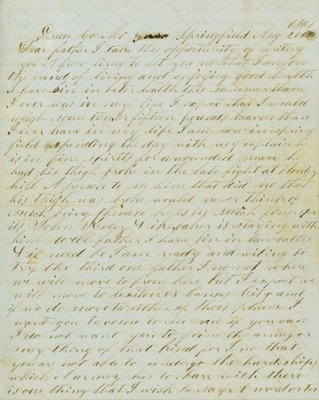 1861
Green Co Mo Springfield Aug 21st
Dear father I take the opportunity of writing
you a fiew lines to let you no that I am on
the land of living and enjoying good health
I have bin in beter health this summer than
I ever was in my life I expect that I would
weigh some ten or fifteen pounds heavier than
I ever have in my life I am now in spring
field spending the day with my captain he
is in fine spirits for a wounded man he
had his thigh broke in the late fight at bloody
hill A person to see him that did no that
his thigh was broke would never think of
such being the case he is in such fine spir
its John Wesley is staying with
him well father I have bin in two battles
& if need be I am ready and willing to
try the third one father I no not where
we will move to from here but I expect we
will move to Lexington or kansas City and
if we do move to either of those places I
want you to come to see me if you can
I do not want you to join the army or
eny thing of that kind for I no that
you are not able to undergo the hardships
which A army has to have with there
is one thing that I wish to say